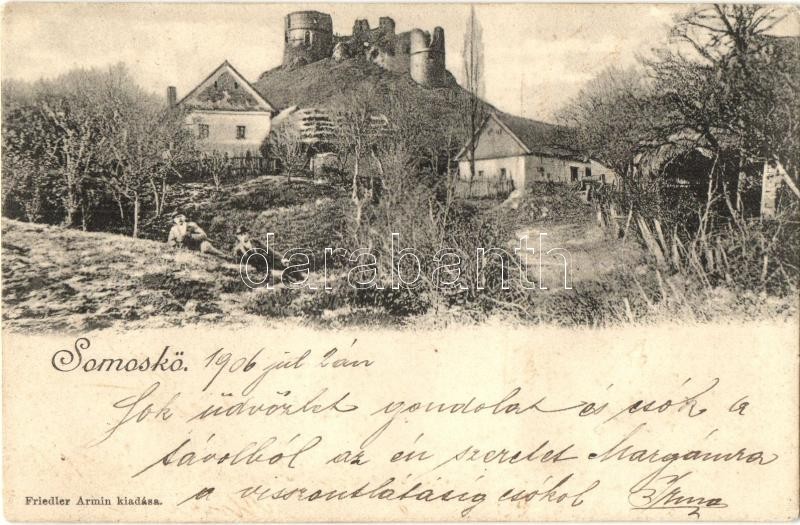 darabanth
Somoskö. 1906 júl 2án
Sok üdvözlet gondolat és csók a
távolból az én szeretet
a viszontlátásig csókol
Friedler Armin kiadása.